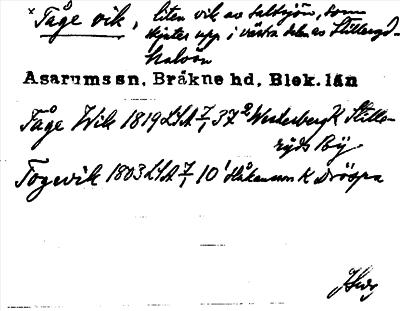 × Tåge vik, liten vik av Saltsjön, som
skjuter upp i västra delen av Stilleryd-
halvön
Asarums sn, Bräkne hd, Blek. län
Tåge Wik 1819 LSA 7/1 37² Westerberg K Stille-
ryds By
Togevik 1803 LSA 7/1 10¹ Håkansson K Dröspa